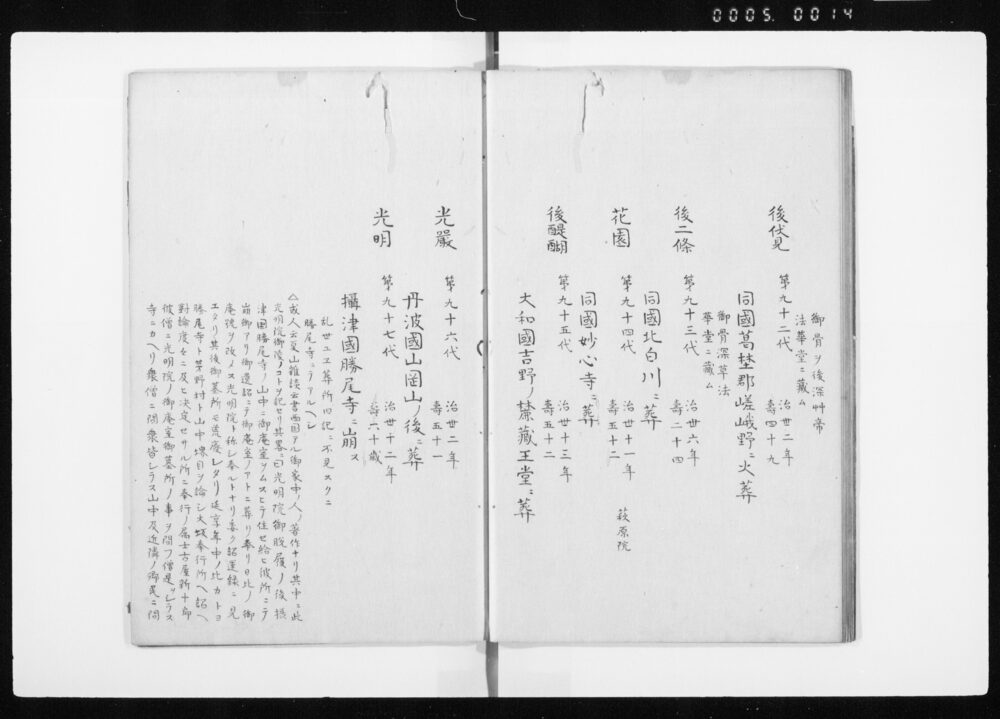 0005. 0014
御骨ヲ後深艸帝
法華堂ニ藏ム
後伏見
第九十二代
治世二年
壽四十九
同國葛埜郡嵯峨野ニ火葬
御骨深草法
華堂ニ藏ム
後二條
第九十三代
治世六年
壽二十四
同國北白川ニ葬
花園
第九十四代
治世十一年
壽五十二
萩原院
同國妙心寺ニ葬
後醍醐
第九十五代
治世十三年
壽五十二
大和國吉野ノ麓藏王堂ニ葬
光嚴
第九十六代
治世二年
壽五十一
丹波國山国山ノ後ニ葬
光明
第九十七代
治世十二年
壽六十歳
攝津國勝尾寺ニ崩ス
乱世ユヱ葬所旧記ニ不見スクニ
勝尾寺ニテアルヘシ
△或人云夏山雜談云書西国アル御家中ノ人ノ著作ナリ其中ニ此
光明院御陵ノコトヲ記セリ其畧ニ曰光明院御脱履ノ後攝
津国勝尾寺ノ山中ニ御庵室ヲムスヒテ住セ給ヒ彼所ニテ
崩御アリ御遺詔ニテ御庵室ノアトニ葬リ奉リ日比ノ御
庵號ヲ改メス光明院ト称シ奉ルトナリ委ク紹運録ニ見
エタリ其後御墓所モ荒廢レタリ延享年中ノ比カトヨ
勝尾寺ト茅野村ト山中堺目ヲ論シ大坂奉行所ヘ訟ヘ
對論度々ニ及ヒ決定セサル所ニ奉行ノ属士古屋新十郎
彼僧ニ光明院ノ御庵室御墓所ノ事ヲ問フ僧是ヲシラス
寺ニカヘリ衆僧ニ問衆皆シラス山中及近隣ノ郷民ニ問